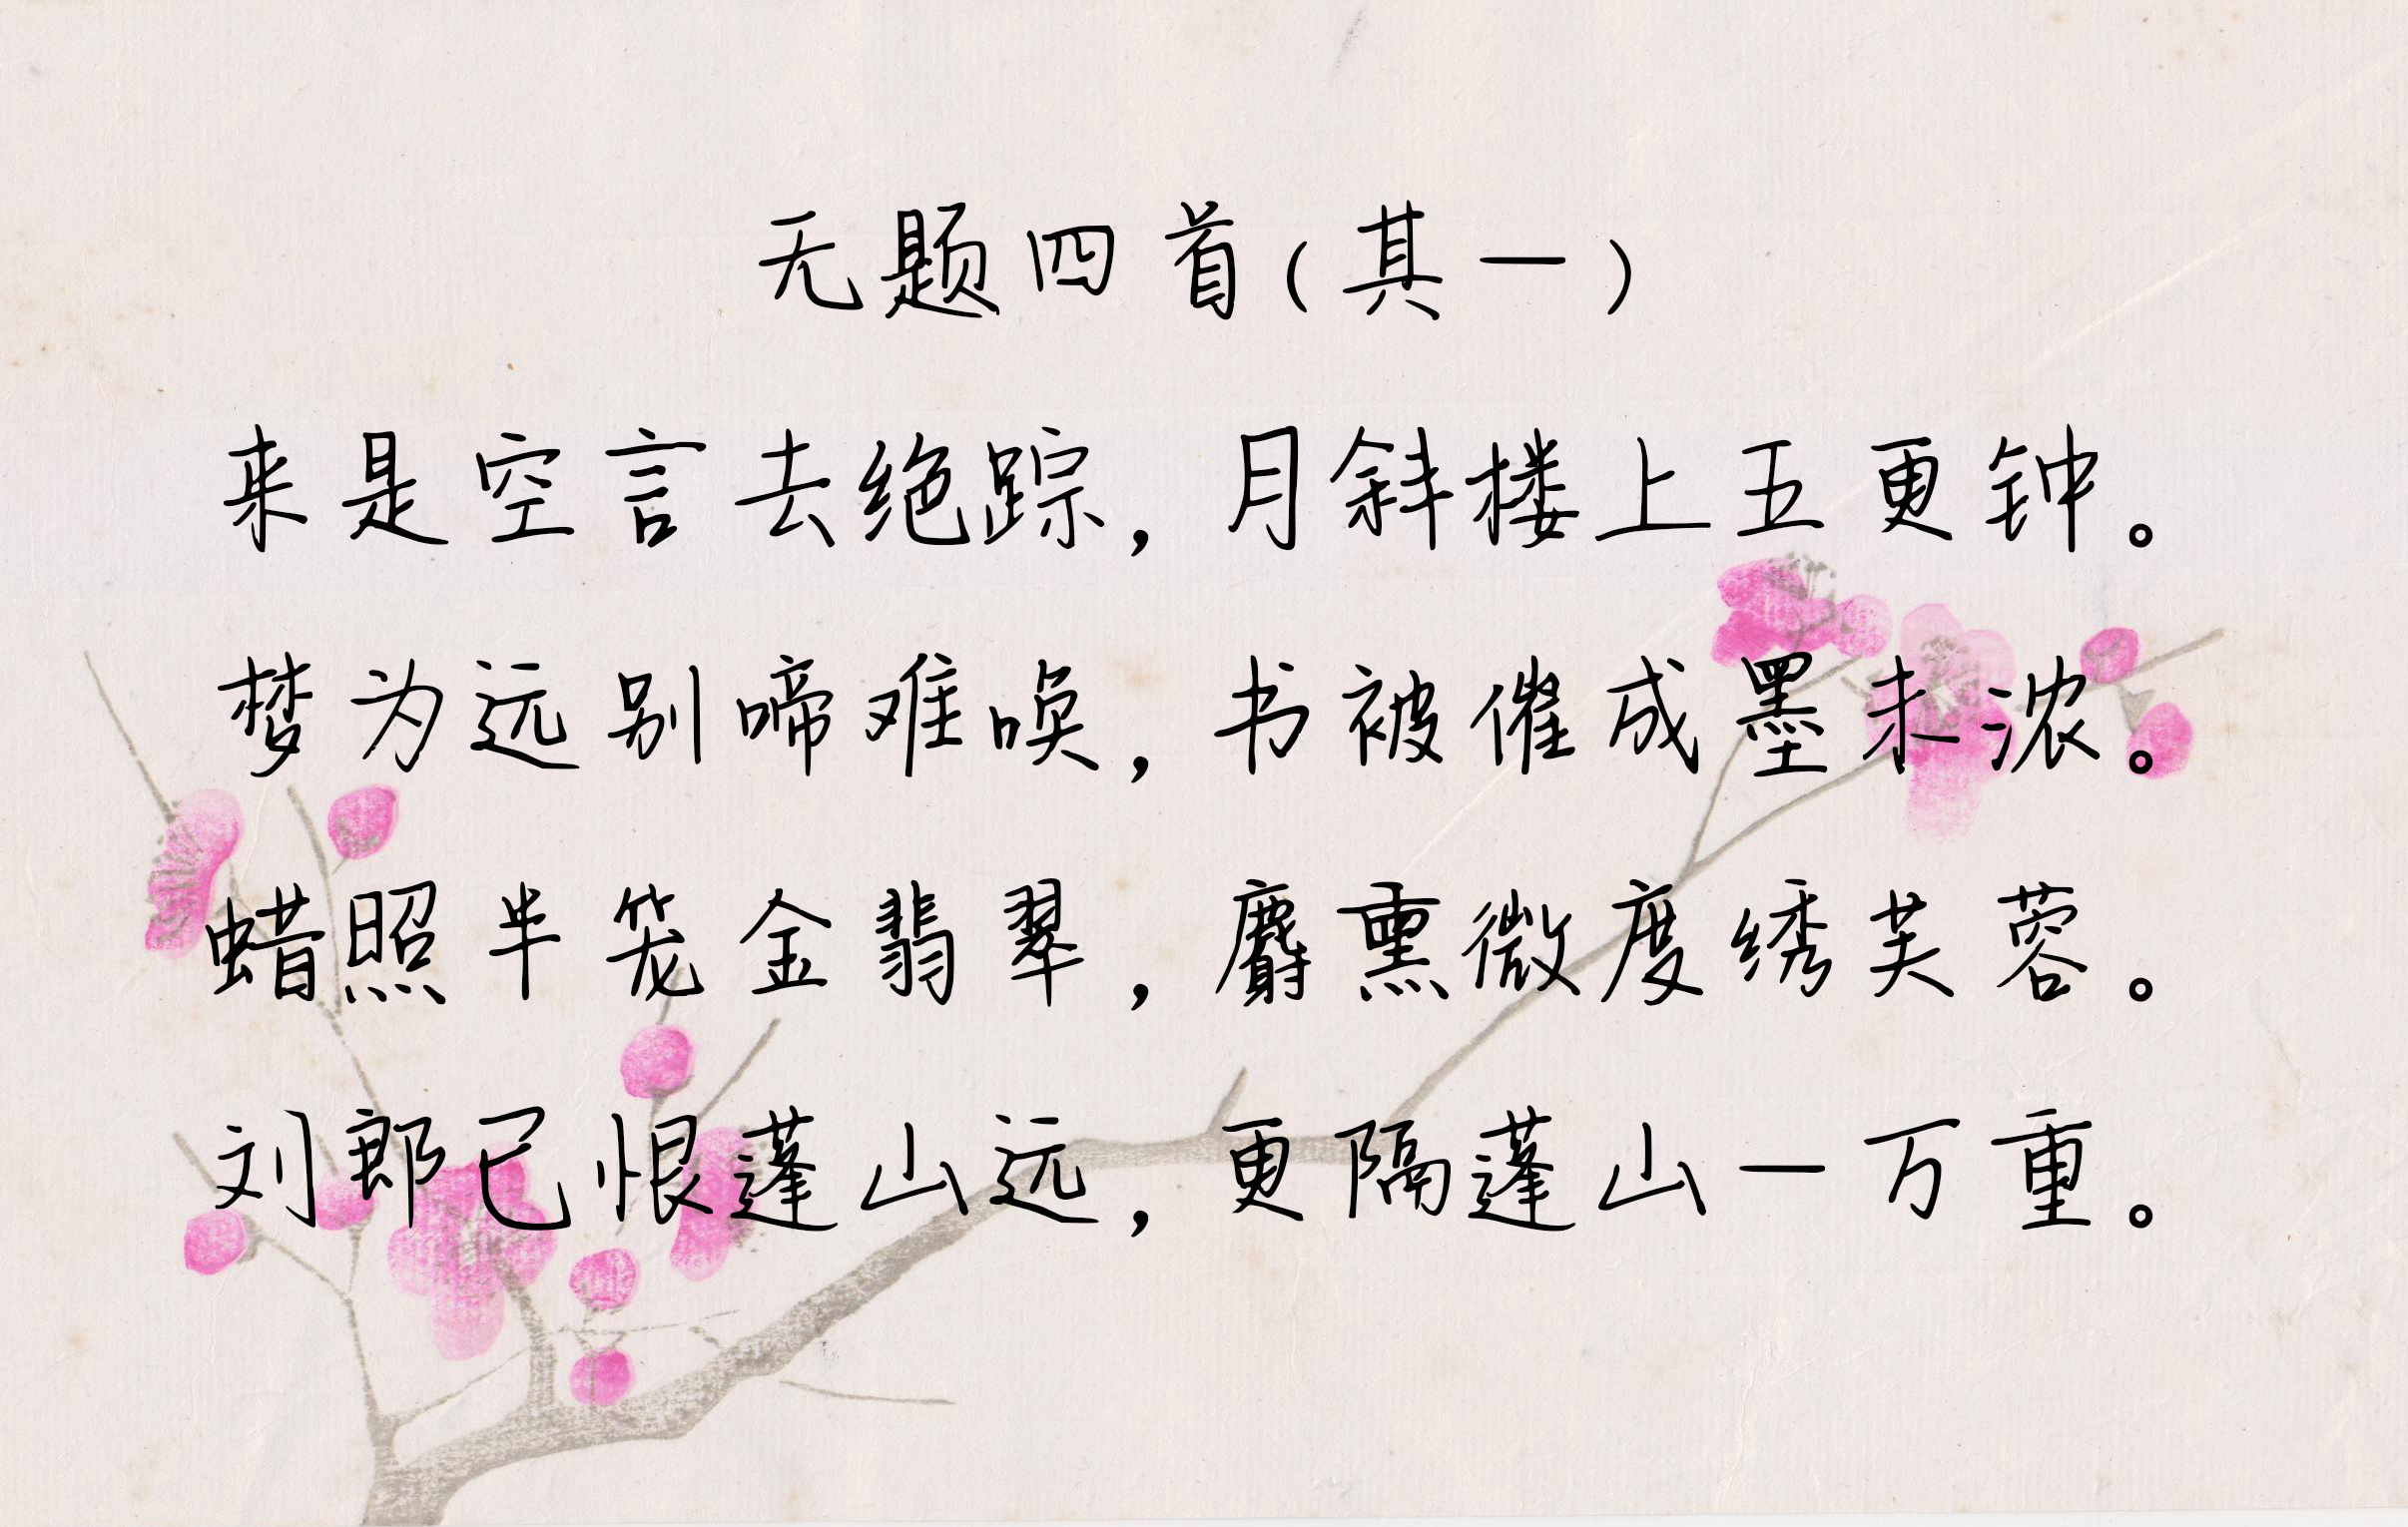 无题四首(其一)
来是空言去绝踪，月斜楼上五更钟。
梦为远别啼难唤，书被催成墨未浓。
蜡照半笼金翡翠，麝熏微度绣芙蓉。
刘郎已恨蓬山远，更隔蓬山一万重。